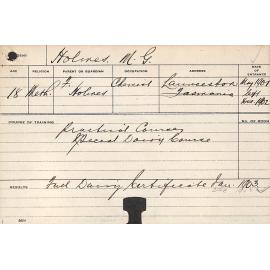 Holmes, M. G.
AGE RELIGION PARENT OR GUARDIAN OCCUPATION ADDRESS DATE OF ENTRANCE
18 Meth. F. Holmes Chemist Launceston Tasmania May 1901 left Dec. 1902
COURSE OF TRAINING NO. OF ROOM
Practical Course
Special Dairy Course
RESULTS Dairy Certificate Jan. 1903.